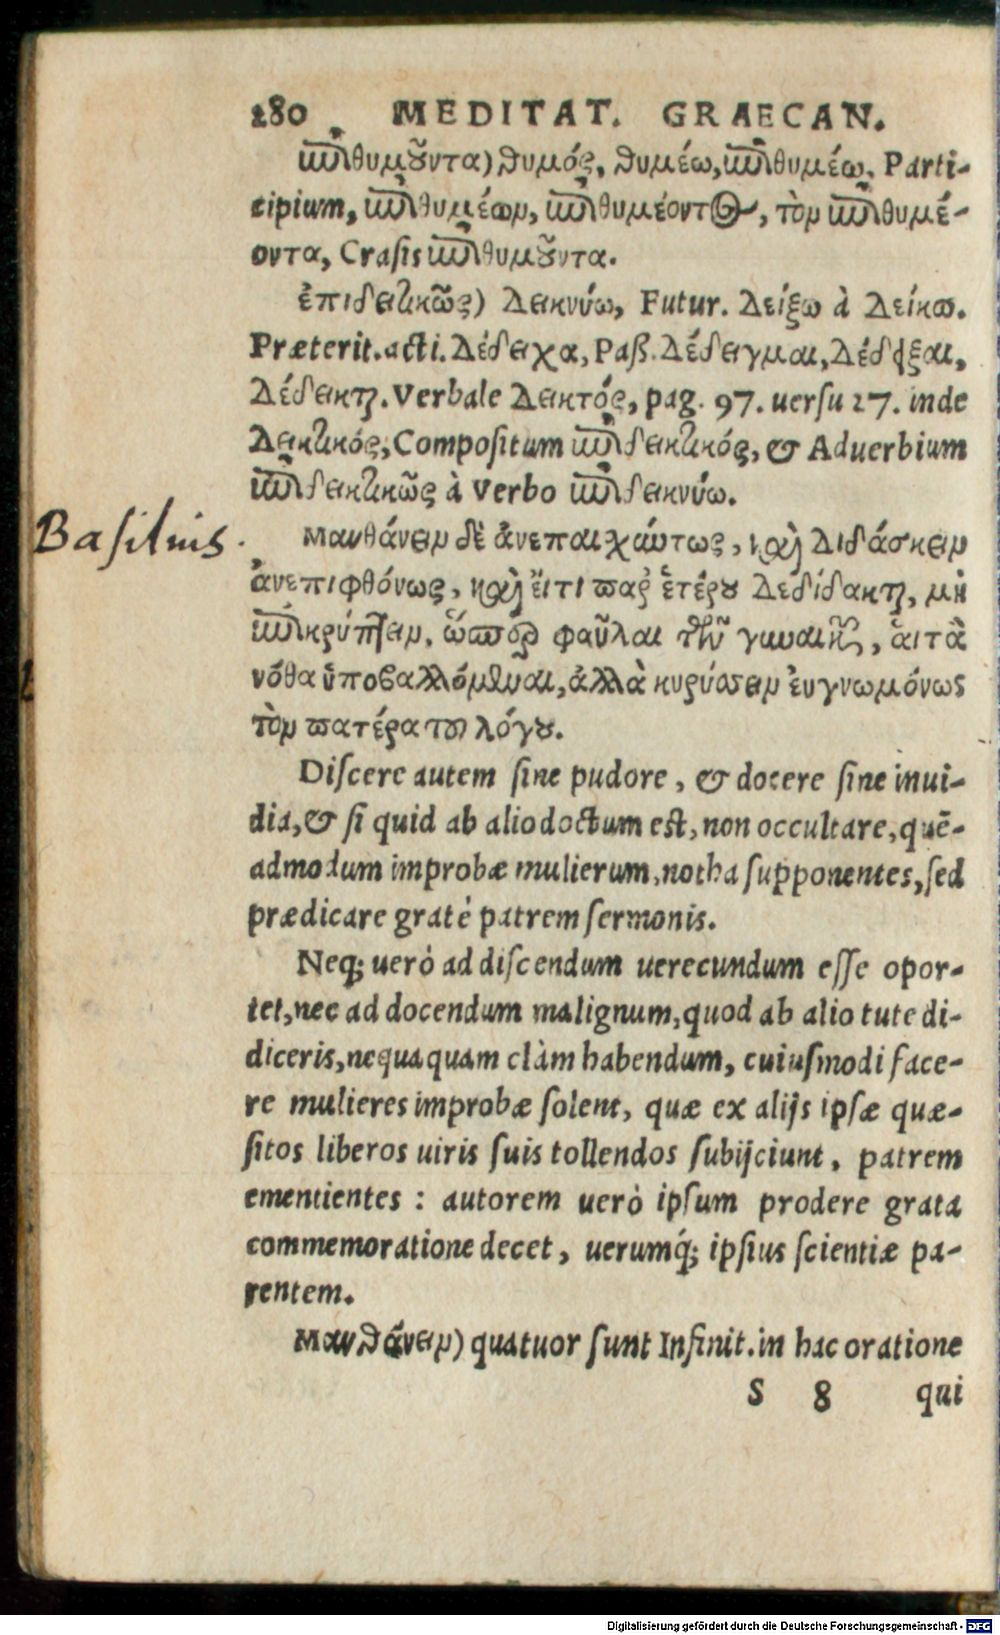 280 MEDITAT. GRAECAN.
ἐπιθυμοῦντα) θυμός, θυμέω, ἐπιθυμέω. Parti-
cipium, ἐπιθυμέων, ἐπιθυμέοντος, τὸν ἐπιθυμέ-
οντα, Crasis ἐπιθυμοῦντα.
ἐπιδεικτικῶς) Δεικνύω, Futur. Δείξω à Δείκω.
Præterit. acti. Δέδειχα, Paß. Δέδειγμαι, Δέδειξαι,
Δέδεικται. Verbale Δεικτός, pag. 97. uersu 27. inde
Δεικτικός, Compositum ἐπιδεικτικός, & Aduerbium
ἐπιδεικτικῶς à Verbo ἐπιδεικνύω.
Basilius.
Μανθάνειν δὲ ἀνεπαιχύντως, καὶ Διδάσκειν
ἀνεπιφθόνως, καὶ εἴ τι παρ' ἑτέρου Δεδίδακται, μὴ
ἐπικρύπτειν, ὥσπερ φαῦλαι τῶν γυναικῶν, αἱ τὰ
νόθα ὑποβαλλόμεναι, ἀλλὰ κυρύσσειν εὐγνωμόνως
τὸν πατέρα τοῦ λόγου.
Discere autem sine pudore, & docere sine inui-
dia, & si quid ab alio doctum est, non occultare, quē-
admodum improbæ mulierum, notha supponentes, sed
prædicare gratè patrem sermonis.
Neq; uerò ad discendum uerecundum esse opor-
tet, nec ad docendum malignum, quod ab alio tute di-
diceris, nequaquam clàm habendum, cuiusmodi face-
re mulieres improbæ solent, quæ ex alijs ipsæ quæ-
sitos liberos uiris suis tollendos subijciunt, patrem
ementientes : autorem uerò ipsum prodere grata
commemoratione decet, uerumq́; ipsius scientiæ pa-
rentem.
Μανθάνειν) quatuor sunt Infinit. in hac oratione
S 8 qui
Digitalisierung gefördert durch die Deutsche Forschungsgemeinschaft - DFG